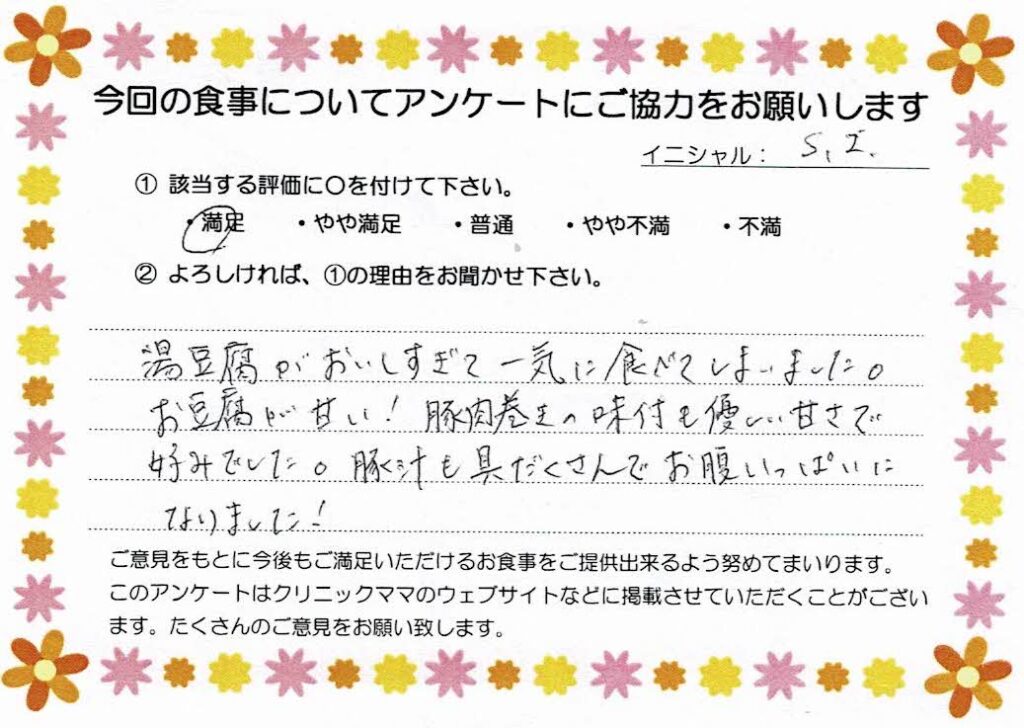 今回の食事についてアンケートにご協力をお願いします
イニシャル： S.I.
① 該当する評価に〇を付けて下さい。
・満足 ・やや満足 ・普通 ・やや不満 ・不満
② よろしければ、①の理由をお聞かせ下さい。
湯豆腐がおいしすぎて一気に食べてしまいました。
お豆腐が甘い！豚肉巻きの味付も優しい甘さで
好みでした。豚汁も具だくさんでお腹いっぱいに
なりました！
ご意見をもとに今後もご満足いただけるお食事をご提供出来るよう努めてまいります。
このアンケートはクリニックママのウェブサイトなどに掲載させていただくことがござい
ます。たくさんのご意見をお願い致します。